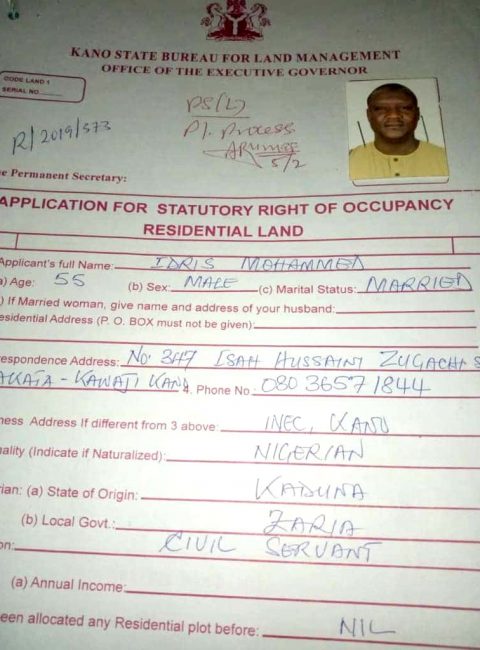 KANO STATE BUREAU FOR LAND MANAGEMENT
OFFICE OF THE EXECUTIVE GOVERNOR
CODE LAND 1
SERIAL NO.
R/2019/573
PS(L)
Pl. Process
5/2
e Permanent Secretary:
APPLICATION FOR STATUTORY RIGHT OF OCCUPANCY
RESIDENTIAL LAND
Applicant's full Name: IDRIS MOHAMMED
a) Age: 55 (b) Sex: MALE (c) Marital Status: MARRIED
) If Married woman, give name and address of your husband:
esidential Address (P. O. BOX must not be given):
respondence Address: No 347 ISAH HUSSAINI ZUGACHI S
AKATA - KAWAJI KANO 4. Phone No. 08036571844
ness Address If different from 3 above: INEC, KANO
nality (Indicate if Naturalized): NIGERIAN
rian: (a) State of Origin: KADUNA
(b) Local Govt.: ZARIA
on: CIVIL SERVANT
(a) Annual Income:
een allocated any Residential plot before: NIL